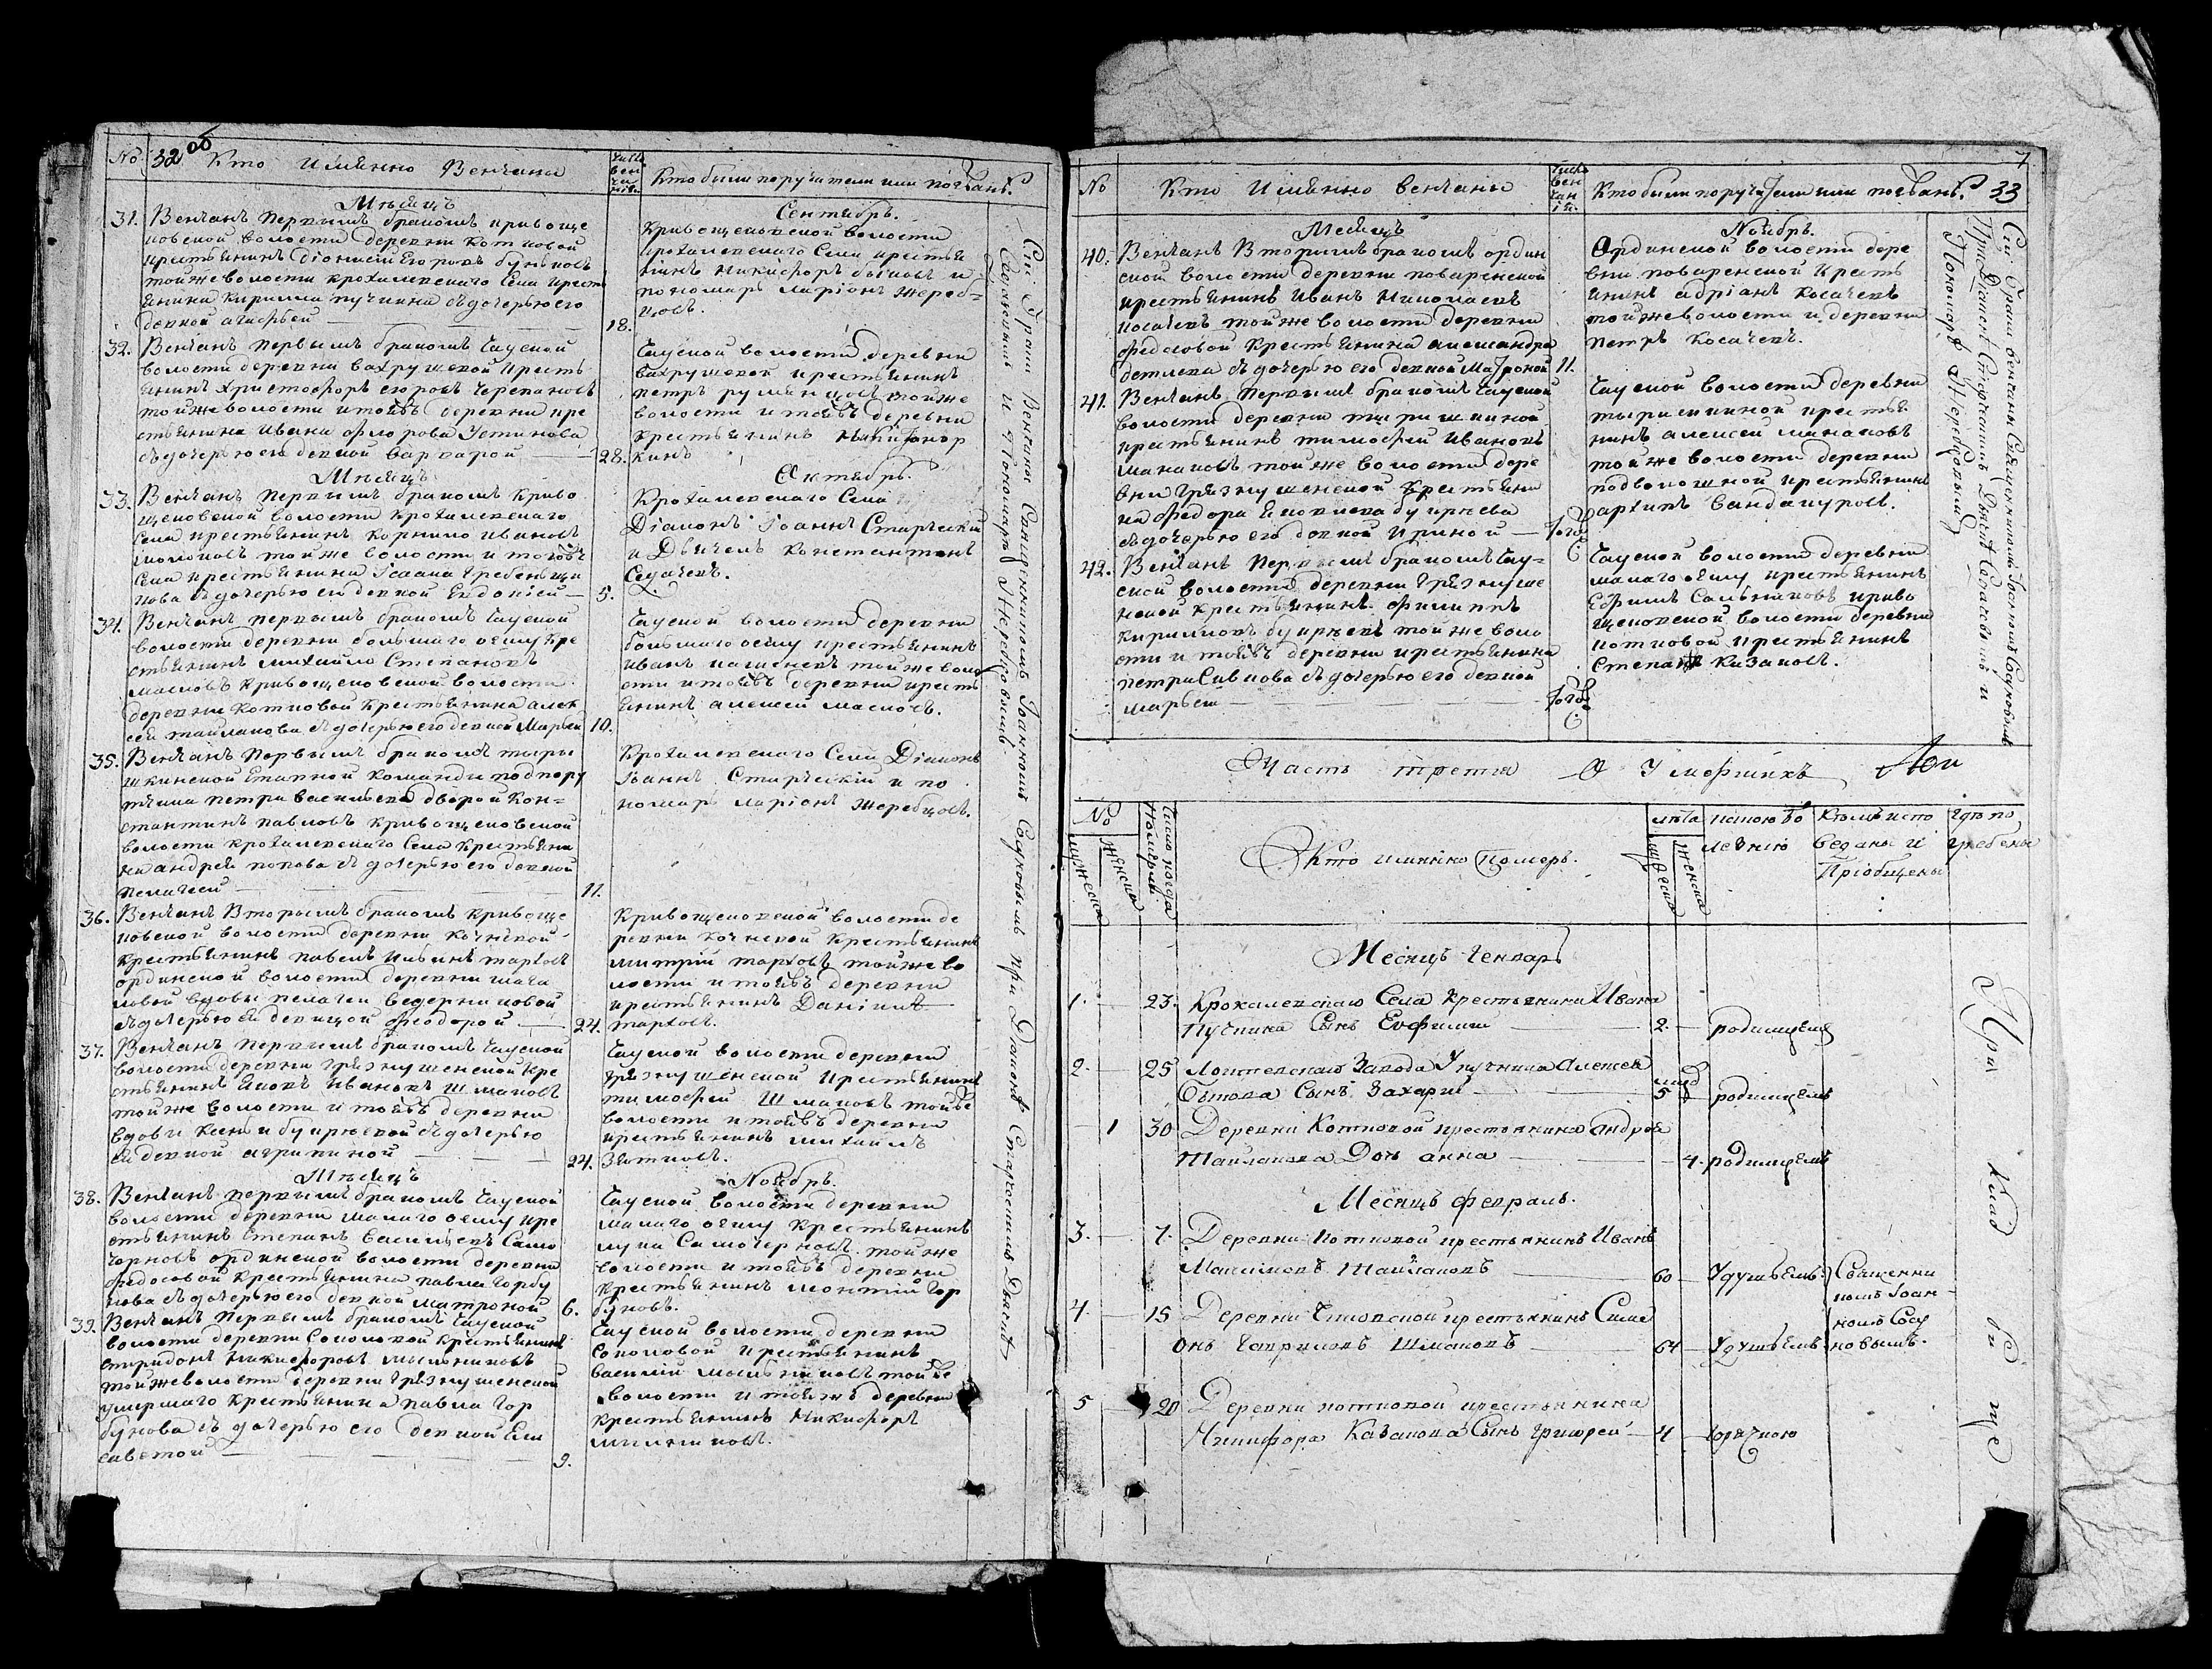 32 об
№ Кто имянно Венчаны
Кто были поручители или поѣзжанѣ
Мѣсяцъ Сентябрь.
31. Венчанъ первымъ бракомъ кривоще
ковской волости деревни Котковой
крестьянинъ Діонисій Егоровъ
тойже волости крохалевскаго Села крест
янина Кирилла пучкина съ дочерью его
девкой агафьей 18.
Кривощековской волости
крохалевскаго Села крестья
нинъ Никифоръ быковъ и
пономарь Ларіонъ Жереб=
цовъ.
32. Венчанъ первымъ бракомъ Чауской
волости деревни вахрушевой кресть
янинъ Христофоръ егоровъ Черепановъ
тойже волости и тоейжъ деревни кре
стьянина Ивана флорова Устинова
съ дочерью его девкой варварой 28.
Чауской волости деревни
вахрушевой крестьянинъ
петръ румянцовъ тойже
волости и тоейжъ деревни
крестьянинъ
кинъ
Мѣсяцъ Октябрь.
33. Венчанъ первымъ бракомъ Криво
щековской волости Крохалевскаго
Села крестьянинъ Корнило Ивановъ
тойже волости и тогожъ
Села крестьянина Іоанна Гребенщи
кова съ дочерью ево девкой Евдокіей 5.
Крохалевскаго Села
Діаконъ Іоаннъ Старческій
и Дьячекъ Константинъ
Седачевъ.
34. Венчанъ первымъ бракомъ Чауской
волости деревни большаго оешу кре
стьянинъ михайло Степановъ
масловъ Кривощековской волости
деревни Котковой Крестьянина алек
сея тайлакова съ дочерью его девкой Марьей 10.
Чауской волости деревни
большаго оешу крестьянинъ
Иванъ тойже воло
сти и тоейжъ деревни кресть
янинъ алексей масловъ.
35. Венчанъ первымъ бракомъ тыры
шкинской Етапной команды подпору
тчика петра васильева дворовой Кон=
стантинъ павловъ кривощековской
волости крохалевскаго Села крестьяни
на андрея попова съ дочерью его девкой
пелагеей 11.
Крохалевскаго Села Діаконъ
Іоаннъ Старческій и по
номарь ларіонъ жеребцовъ.
36. Венчанъ Вторымъ бракомъ Кривоще
ковской волости деревни Кочневой
крестьянинъ павелъ Ильинъ тарховъ
ординской волости деревни шача
ловой вдовы пелагеи ведерниковой
съ дочерью ея девицой феодорой 24.
Кривощековской волости де
ревни кочневой крестьянинъ
митрій тарховъ тойже во
лости и тоейжъ деревни
крестьянинъ Даніилъ
тарховъ.
37. Венчанъ первымъ бракомъ Чауской
волости деревни грязнушенской кре
стьянинъ Яковъ Ивановъ шмаковъ
тойже волости и тоейжъ деревни
вдовы букрѣевой съ дочерью
ея девкой агрипиной 24.
Чауской волости деревни
грязнушенской крестьянинъ
тимофей Шмаковъ тойже
волости и тоейжъ деревни
крестьянинъ михайлъ
Зятковъ.
Мѣсяцъ Ноябрь.
38. Венчанъ первымъ бракомъ Чауской
волости деревни малаго оешу кре
стьянинъ Степанъ Васильевъ Само
черновъ ординской волости деревни
федосовой крестьянина павла горбу
нова съ дочерью его девкой матроной 6.
Чауской волости деревни
малаго оешу крестьянинъ
лука Самочерновъ. тойже
волости и тоейжъ деревни
Крестьянинъ гор
буновъ.
39. Венчанъ первымъ бракомъ Чауской
волости деревни Соколовой крестьянинъ
спиридонъ никифоровъ мыльниковъ
тойже волости деревни грязнушенской
умершаго крестьянина павла гор
бунова съ дочерью его девкой Ели
саветой 9.
Чауской волости деревни
Соколовой крестьянинъ
василий мыльниковъ тойже
волости и тоейжъ деревни
крестьянинъ Никифоръ
мыльниковъ.
Сіи браки Венчаны Священникомъ Іоанномъ Сосуновымъ при Діаконѣ Старческомъ Дьячкѣ
Седачевымъ и Пономарѣ Жеребцовымъ
7
33
№ Кто имянно венчаны
Кто были поручатели или поѣзжанѣ
Месяцъ Ноябрь.
40. Венчанъ Вторымъ бракомъ ордин
ской волости деревни поваренской
крестьянинъ Иванъ Николаевъ
косачевъ тойже волости деревни
федосовой крестьянина александра
съ дочерью его девкой матроной 11.
Ординской волости дере
вни поваренской кресть
янинъ адріанъ Косачевъ
тойже волости и деревни
петръ косачевъ.
41. Венчанъ первымъ бракомъ Чауской
волости деревни тырышкиной
крестьянинъ тимофей Ивановъ
манаковъ тойже волости дере
вни Грязнушенской крестьяни
на федора букрѣева
съ дочерью его девкой Ириной
Чауской волости деревни
тырышкиной крестья
нинъ алексей манаковъ
тойже волости деревни
подволошной крестьянинъ
архипъ бандауровъ.
42. Венчанъ первымъ бракомъ Чау=
ской волости деревни грязнуше
нской крестьянинъ филиппъ
кириловъ букрѣевъ тойже воло
сти и тоейжъ деревни крестьянина
петра Сивкова съ дочерью его девкой
марьей
Чауской волости деревни
малаго оешу крестьянинъ
Ефимъ Сальниковъ криво
щековской волости деревни
котковой крестьянинъ
Степанъ Казаковъ.
Сіи браки венчаны Священникомъ Іоанномъ Сосуновымъ
При Діаконѣ Старческомъ Дьячкѣ Седачевымъ и
Пономарѣ Жеребцовымъ
Часть третья О Умершихъ
№
мужеска
женска
Число когда померъ.
Кто имянно Померъ.
лѣта
мужеска
женска
какою бо
лезнію
Кѣмъ испо
веданы и
Пріобщены
гдѣ по
гребены
Месяцъ Генварь
1. 23. Крохалевскаго Села Крестьянина Ивана
Пучкина Сынъ Евфимий 2. родимцемъ
2. 25 Локтевскаго Завода Алексея
Захарий 5 родимцемъ
1 30 Деревни Котковой крестьянина Андрея
Тайлакова Дочь анна 4. родимцемъ
Месяцъ февраль.
3. 7. Деревни Котковой крестьянинъ Иванъ
Максимовъ Тайлаковъ 60 Удушьемъ
4. 15 Деревни крестьянинъ Симе
онъ Гавриловъ Шмаковъ 64 Удушьемъ
Священни
комъ Іоан
номъ Сосу
новымъ.
5 20 Деревни котковой крестьянина
Никифора Казакова Сынъ григорей 4 горячкою
При Клад би ще